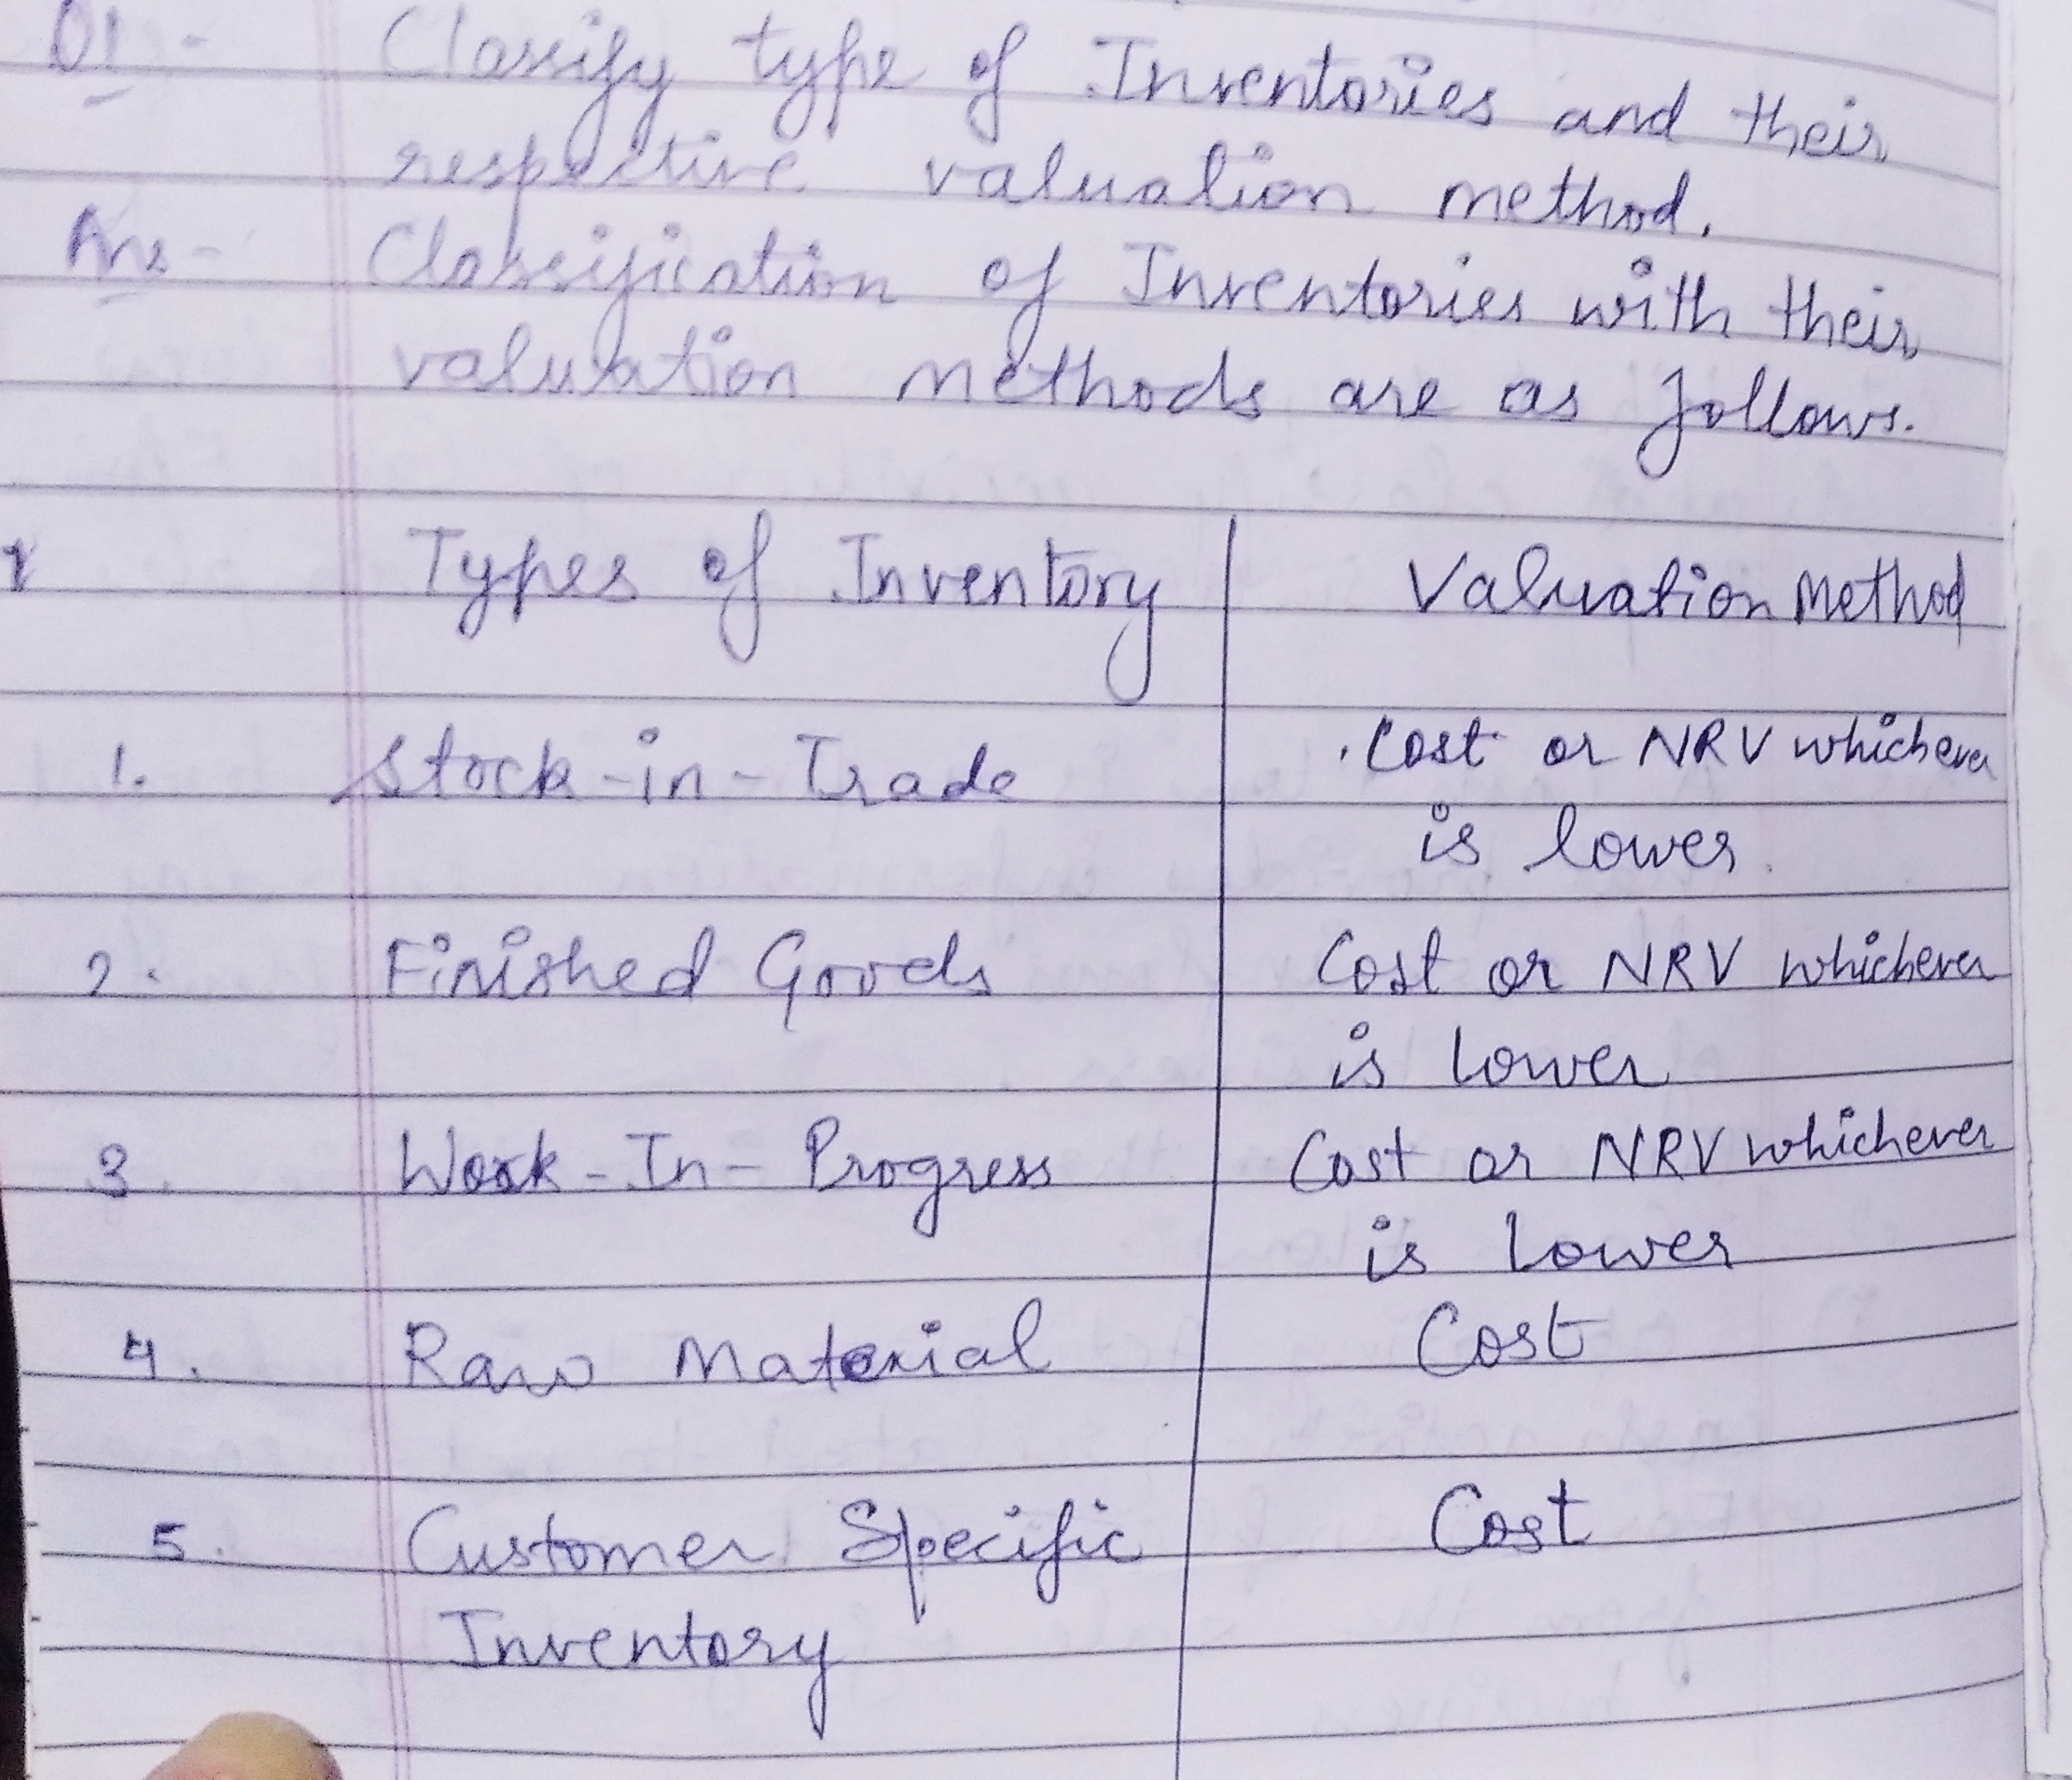 Q1- Classify type of Inventories and their
respective valuation method.
Ans- Classification of Inventories with their
valuation methods are as follows.
Types of Inventory Valuation Method
1. Stock-in-Trade Cost or NRV whichever
is lower.
2. Finished Goods Cost or NRV whichever
is lower
3. Work-In-Progress Cost or NRV whichever
is lower
4. Raw Material Cost
5. Customer Specific Cost
Inventory